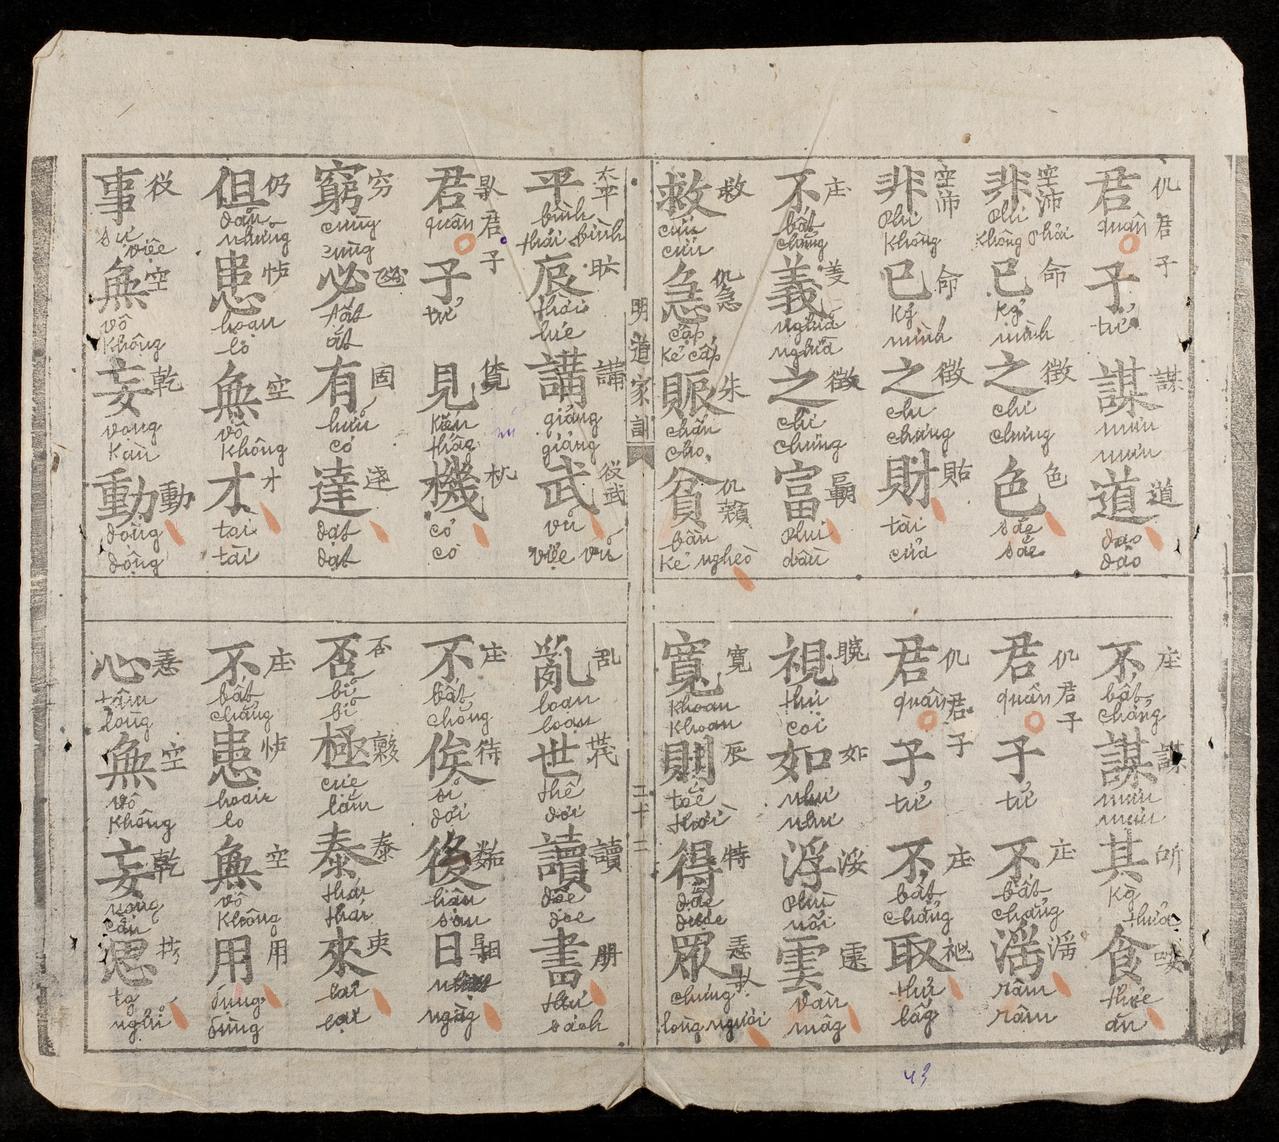 君子謀道
仉君子 謀 道
quân tử mưu mưu đạo đáo
不謀其食
庄 謀 所
bất chẳng mưu mưu kỳ thửa thực ăn
非己之色
空沛 命 徵 色
phi không phải kỷ mình chi chưng sắc sắc
君子不淫
仉君子 庄 淫
quân tử bất chẳng râm râm
非己之財
空沛 命 徵 貼
phi không kỷ mình chi chưng tài của
君子不取
仉君子 庄 祂
quân tử bất chẳng thủ lấy
不義之富
庄 義 徵
bất chẳng nghĩa nghĩa chi chưng phú dầu
視如浮雲
如 浽
thị coi như như phù nổi vân mây
救急賑貧
救 仉急 朱
cứu cứu cấp kẻ cấp chẩn cho bần kẻ nghèo
寬則得眾
寬 辰 特
khoan khoan tắc thời đắc được chúng lòng người
明道家訓
二十二
平辰講武
太平 講 役武
bình thái bình thời lúc giảng giảng vũ việc vũ
亂世讀書
乱 讀
loạn loạn thế đời độc đọc thư sách
君子見機
君子
quân tử kiến thấy cơ cơ
不俟後日
庄 待
bất chẳng sĩ đợi hậu sau ngày
窮必有達
穷 固 達
cùng cùng tất ắt hữu có đạt đạt
否極泰來
否 泰
bĩ bĩ cực lắm thái thái lai lại
但患無才
仍 怯 空 才
đãn nhưng hoạn lo vô không tài tài
不患無用
庄 怯 空 用
bất chẳng hoạn lo vô không dụng dùng
事無妄動
役 空 乾 動
sự việc vô không vọng càn động động
心無妄思
空 乾
tâm lòng vô không vọng càn tư nghĩ
43